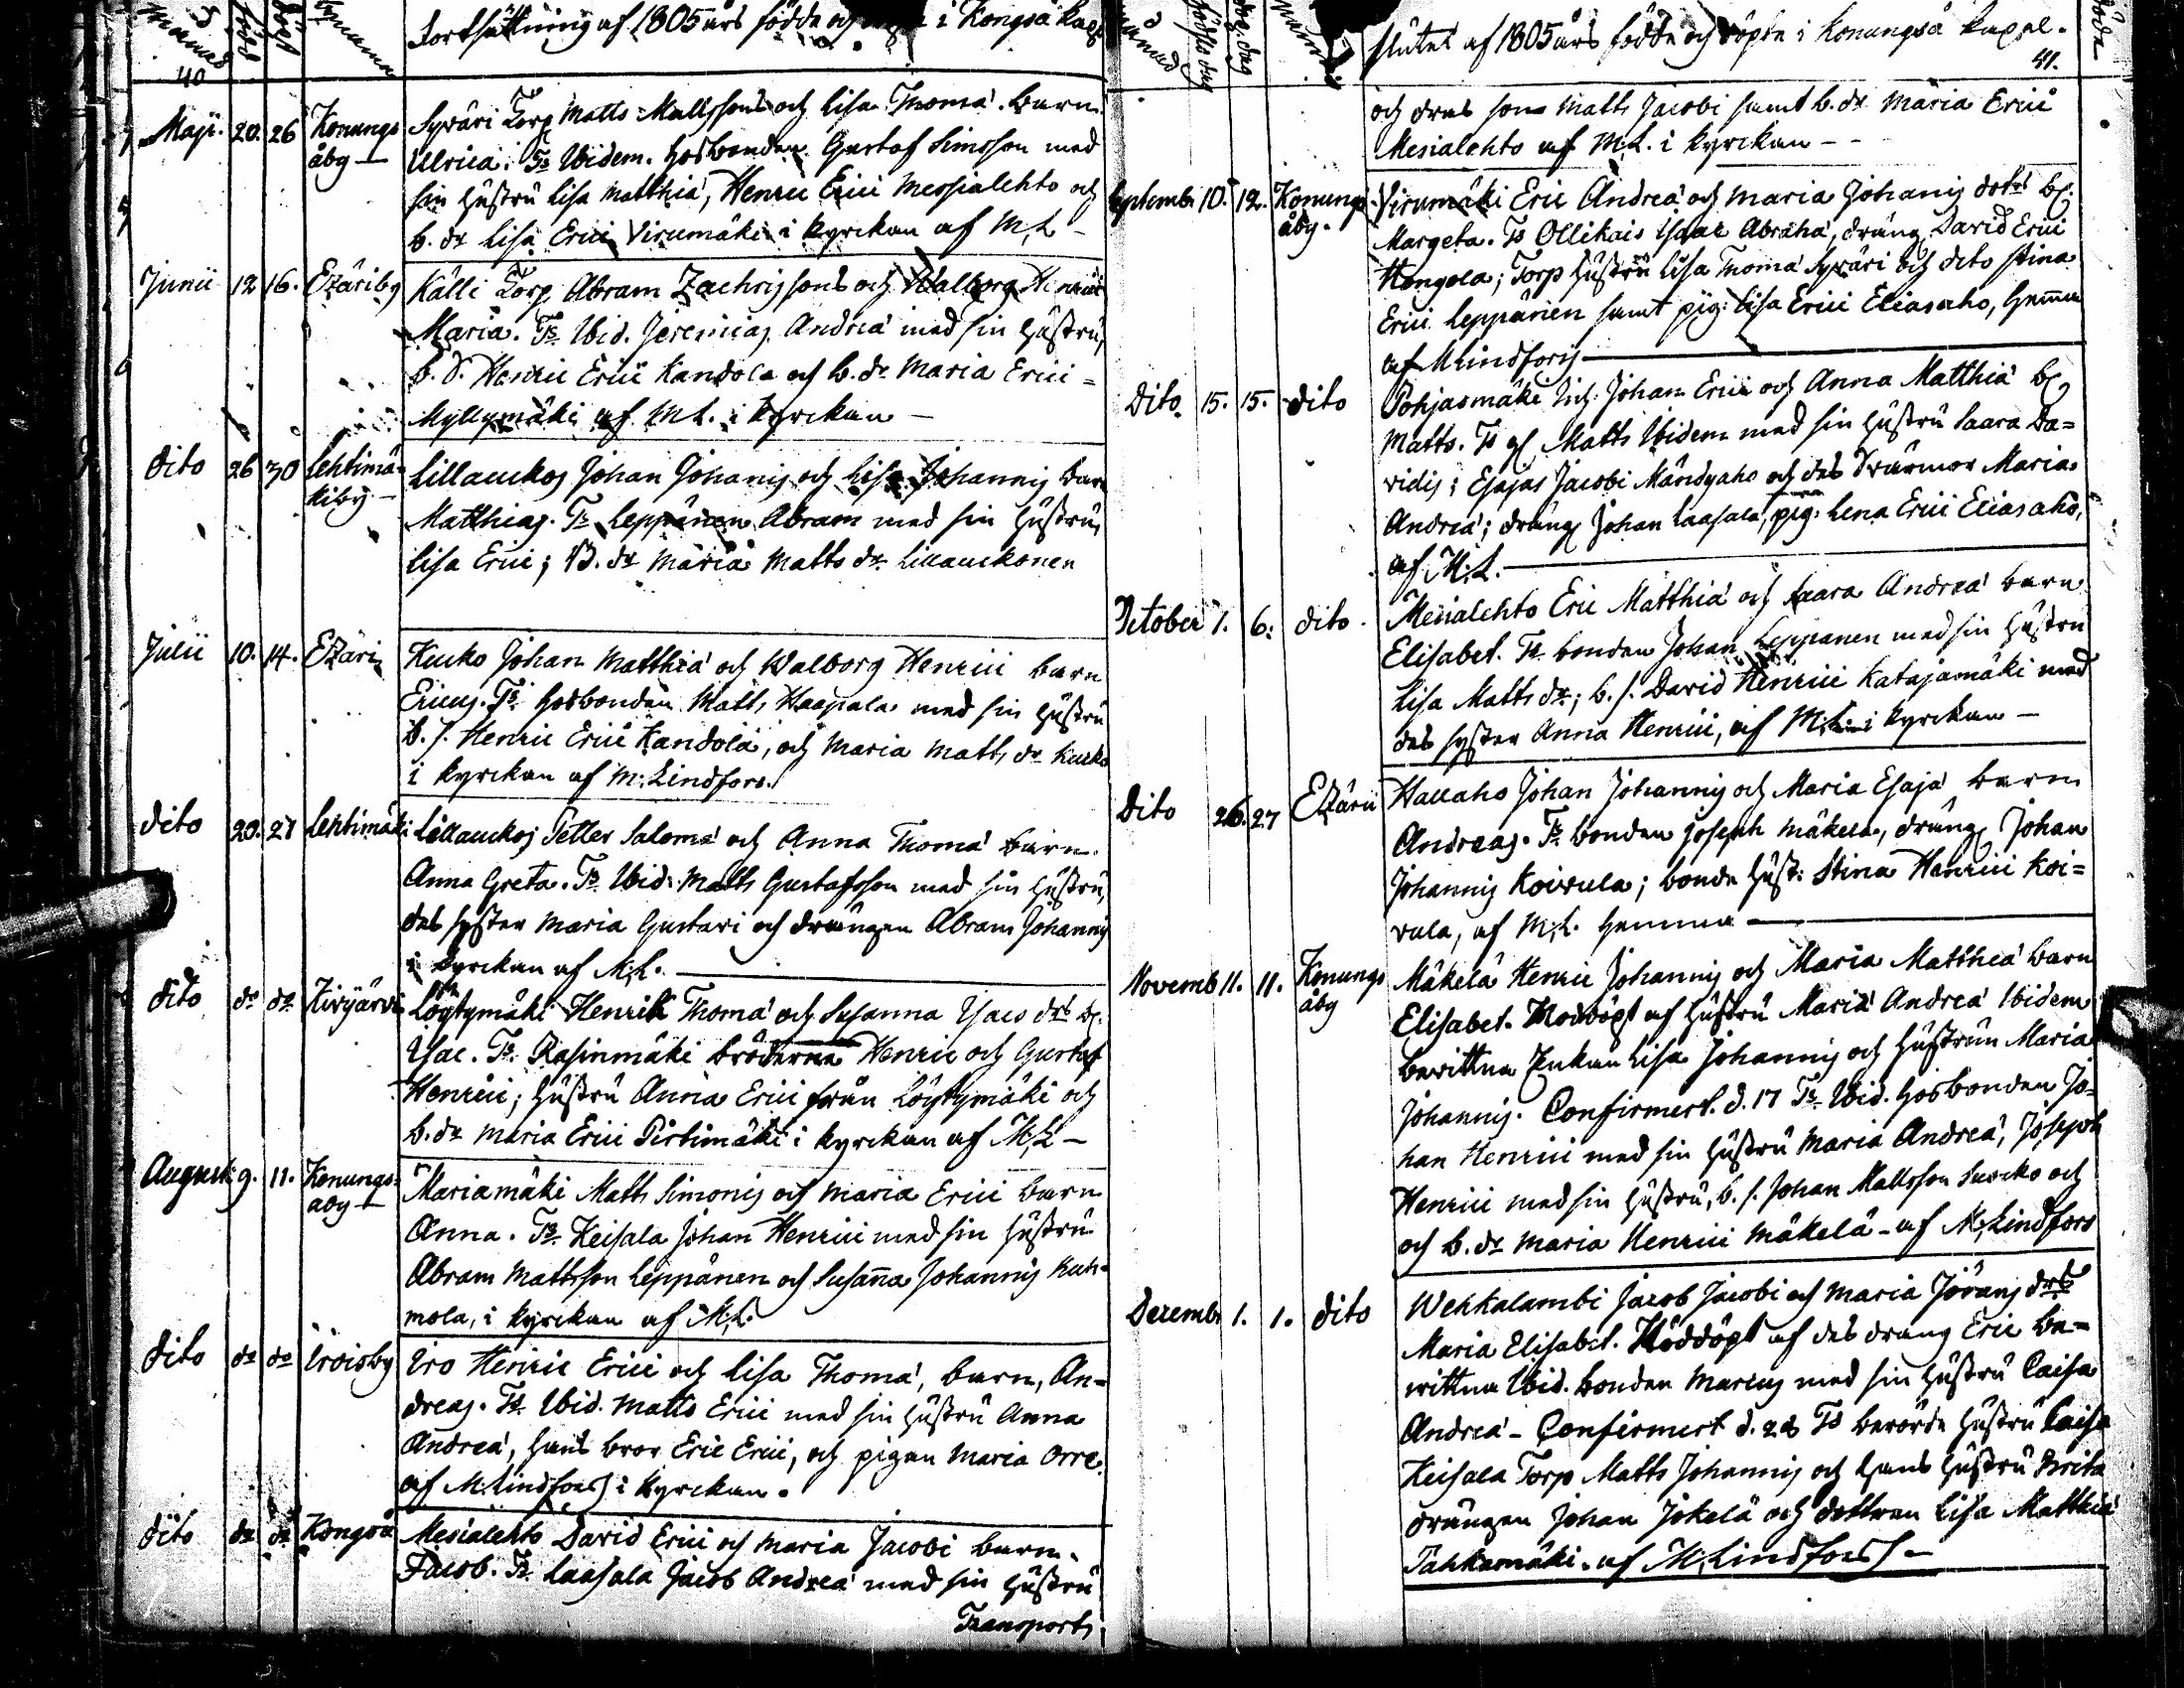 månad
född
döpt
bynamn
Fortsättning af 1805 års födde och i Kongså kapl
40
Maji. 20. 26 Konungs
åby —
Syväri Torp. Matts Mattssons och Lisa Thomæ barn
Ulrica. Ts Ibidem. Husbonden Gustaf Simsson med
sin hustru Lisa Matthiæ, Henric Erici Messialehto och
b. dr Lisa Erici Virumäki i kyrckan af M, L –
Junii 12 16. Etzäriby
Källi Torp. Abram Zachrissons och Walborg Henrici
Maria. Ts Ibid. Jeremias Andreæ med sin hustru,
b. s. Henric Erici Kandola och b. dr Maria Erici =
Myllymäki af M. L. i kyrckan —
dito 26 30 Lehtimä-
kiby —
Lillauckos Johan Johanis och Lisa Johannis barn
Matthias. Ts Leppänen Abram med sin hustru
Lisa Erici; B. dr Maria Matts dr Lillauckonen
Julii 10. 14. Etzäri
Kucko Johan Matthiæ och Walborg Henrici barn
Ericus. Ts husbonden Matts Haapala med sin hustru
b. s. Henric Erici Kandola, och Maria Matts dr Kucko
i kyrckan af M: Lindfors.
dito 20. 21 Lehtimäki
Lillauckos Petter Salomæ och Anna Thomæ barn.
Anna Greta. Ts Ibid. Matts Gustafsson med sin hustru,
des syster Maria Gustavi och drängen Abram Johannis
i kyrckan af M; L. —
dito do do Kivijärvi
Löytymäki Henrik Thomæ och Susanna Isacs drs b.
Isac. Ts Rasinmäki bröderna Henric och Gustaf
Henrici; hustru Anna Erici från Löytymäki och
b. dr Maria Erici Pirtimäki i kyrckan af M; L —
August 9. 11. Konungs-
åby —
Mariamäki Matts Simonis och Maria Erici barn
Anna. Ts Keisala Johan Henrici med sin hustru
Abram Mattsson Leppänen och Susanna Johannis Kuh-
mola, i kyrckan af M; L.
dito do do Iroisby
Iro Henric Erici och Lisa Thomæ, barn, An=
dreas. Ts Ibid. Matts Erici med sin hustru Anna
Andreæ, hans bror Eric Erici, och pigan Maria Orre
af M. Lindfors i kyrckan.
dito do do Kongså
Mesialehto David Erici och Maria Jacobi barn.
Jacob. Ts Laasala Jacob Andreæ med sin hustru
Transport
månad
födslodag
dag
slutet af 1805 års födde och döpte i Konungså kapel.
41.
döde
och dras son Matts Jacobi samt b. dr Maria Erici
Mesialehto af M; L. i kyrckan - -
Septemb: 10. 12. Konungs-
åby.
Virumäki Eric Andreæ och Maria Johanis dotrs b.
Margeta. Ts Ollikais Isaac Abrahæ, dräng David Erici
Hongola; Torp hustru Lisa Thomæ Syväri och dito Stina
Erici Leppänen samt pig: Lisa Erici Eliasaho, hemma
af M Lindfors —
Dito. 15. 15. dito
Pohjasmäki Inh. Johan Erici och Anna Matthiæ b.
Matts. Ts gl Matts Ibidem med sin hustru Saara Da=
vidis; Esajas Jacobi Mändyaho och des svärmor Maria
Andreæ; dräng Johan Laasala, pig: Lena Erici Eliasaho,
af M; L. —
October 1. 6. dito.
Mesialehto Eric Matthiæ och Saara Andreæ barn
Elisabet. Ts bonden Johan Leppänen med sin hustru
Lisa Matts dr; b. s. David Henrici Katajamäki med
des syster Anna Henrici, af M; L. i kyrckan —
Dito 26. 27 Etzäri
Hallaho Johan Johannis och Maria Esajæ barn
Andreas. Ts bonden Joseph Mäkelä, dräng Johan
Johannis Koivula; bonde hust: Stina Henrici Koi=
vula, af M; L. hemma —
Novemb 11. 11. Konungs
åby
Mäkelä Henric Johannis och Maria Mattheæ barn
Elisabet. Nöddöpt af hustru Maria Andreæ Ibidem
bevittna Enkan Lisa Johannis och hustrun Maria
Johannis. Confirmert. d. 17 Ts Ibid. husbonden Jo-
han Henrici med sin hustru Maria Andreæ, Joseph
Henrici med sin hustru, b. s. Johan Mattsson Surcko och
och b. dr Maria Henrici Mäkelä – af M; Lindfors
Decemb: 1. 1. dito
Wehkalambi Jacob Jacobi och Maria Jörans drs
Maria Elisabet. Nöddöpt af des dräng Eric be=
vittna Ibid. bonden Marcus med sin hustru Caisa
Andreæ – Confirmert d. 28 Ts berörde hustru Caisa
Keisala Torp. Matts Johannis och hans hustru Brita
drängen Johan Jokela och dottren Lisa Matthiæ
Tahkomäki. af M; Lindfors —